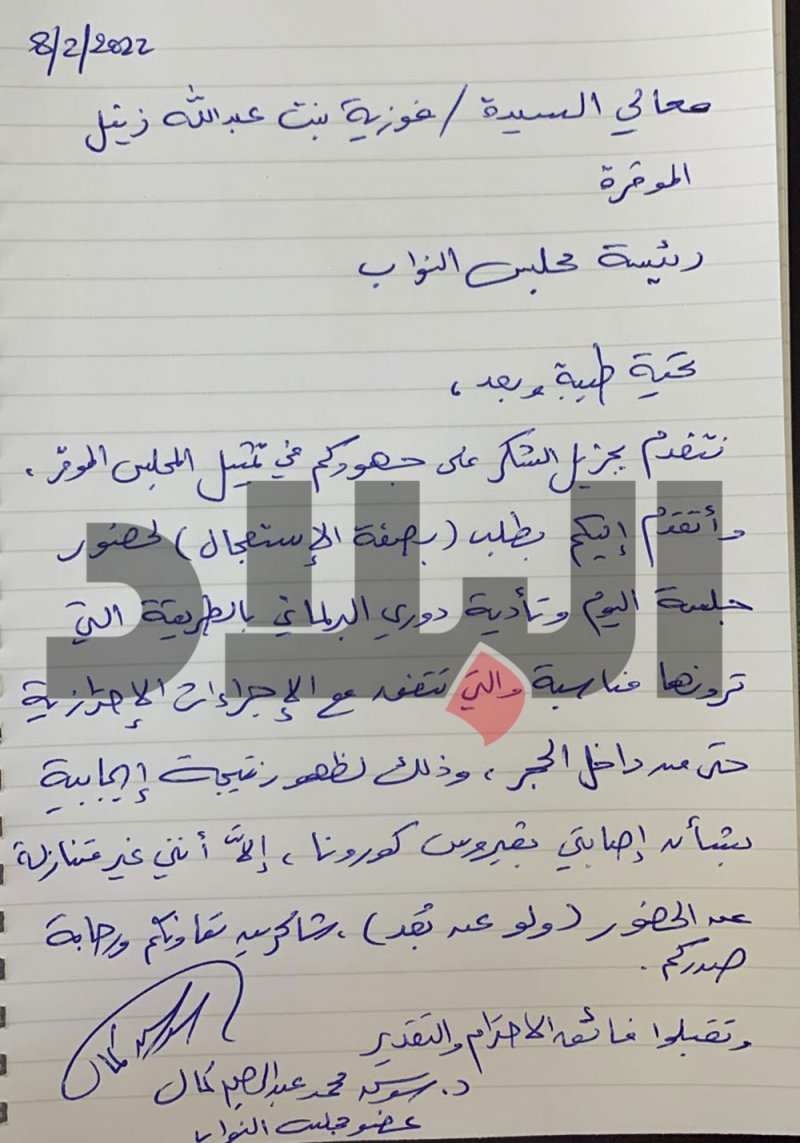 8/2/2022
معالي السيدة / فوزية بنت عبدالله زينل
الموقرة
رئيسة مجلس النواب
تحية طيبة وبعد ،
نتقدم بجزيل الشكر على جهودكم في تمثيل المجلس الموقر ،
وأتقدم إليكم بطلب (بصفة الإستعجال) لحضور
جلسة اليوم وتأدية دوري البرلماني بالطريقة التي
ترونها مناسبة والتي تتفق مع الإجراءات الإحترازية
حتى من داخل الحجر ، وذلك لظهور نتيجة إيجابية
بشأن إصابتي بفيروس كورونا ، إلاّ أنني غير متنازلة
عن الحضور (ولو عن بُعد) ، شاكرين تعاونكم ورحابة
صدركم .
وتقبلوا فائق الاحترام والتقدير
د. سوسن محمد عبدالرحيم كمال
عضو مجلس النواب
البلاد